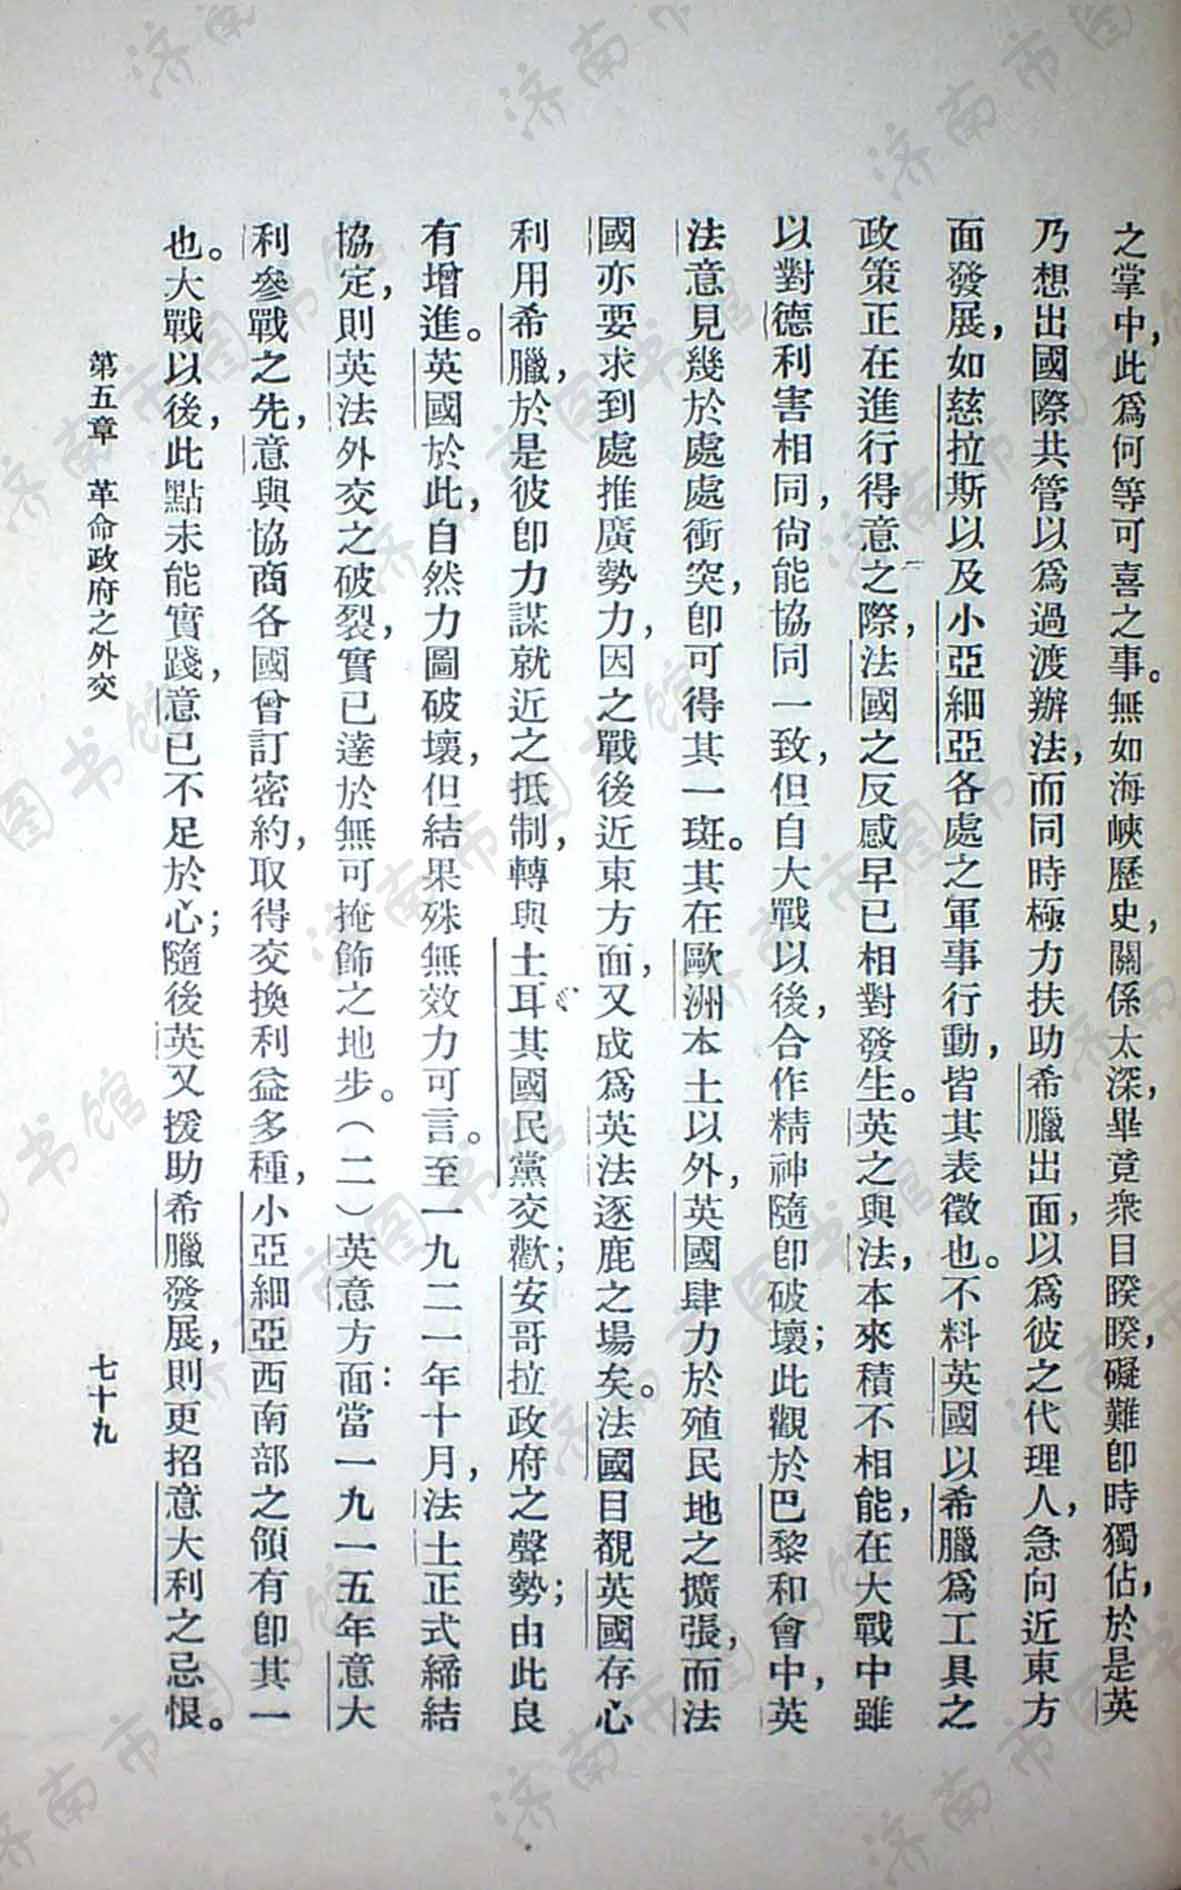 之掌中，此爲何等可喜之事。無如海峽歷史，關係太深，畢竟衆目睽睽，礙難卽時獨佔，於是英
乃想出國際共管以爲過渡辦法，而同時極力扶助希臘出面，以爲彼之代理人，急向近東方
面發展，如慈拉斯以及小亞細亞各處之軍事行動，皆其表徵也。不料英國以希臘爲工具之
政策正在進行得意之際，法國之反感早已相對發生。英之與法，本來積不相能，在大戰中雖
以對德利害相同，尙能協同一致，但自大戰以後，合作精神隨卽破壞；此觀於巴黎和會中，英
法意見幾於處處衝突，卽可得其一斑。其在歐洲本土以外，英國肆力於殖民地之擴張，而法
國亦要求到處推廣勢力，因之戰後近東方面，又成爲英法逐鹿之場矣。法國目覩英國存心
利用希臘，於是彼卽力謀就近之抵制，轉與土耳其國民黨交歡；安哥拉政府之聲勢；由此良
有增進。英國於此，自然力圖破壞，但結果殊無效力可言。至一九二一年十月，法土正式締結
協定，則英法外交之破裂，實已達於無可掩飾之地步。（二）英意方面：當一九一五年意大
利參戰之先，意與協商各國曾訂密約，取得交換利益多種，小亞細亞西南部之領有卽其一
也。大戰以後，此點未能實踐，意已不足於心；隨後英又援助希臘發展，則更招意大利之忌恨。
第五章 革命政府之外交
七十九
濟南市图书馆